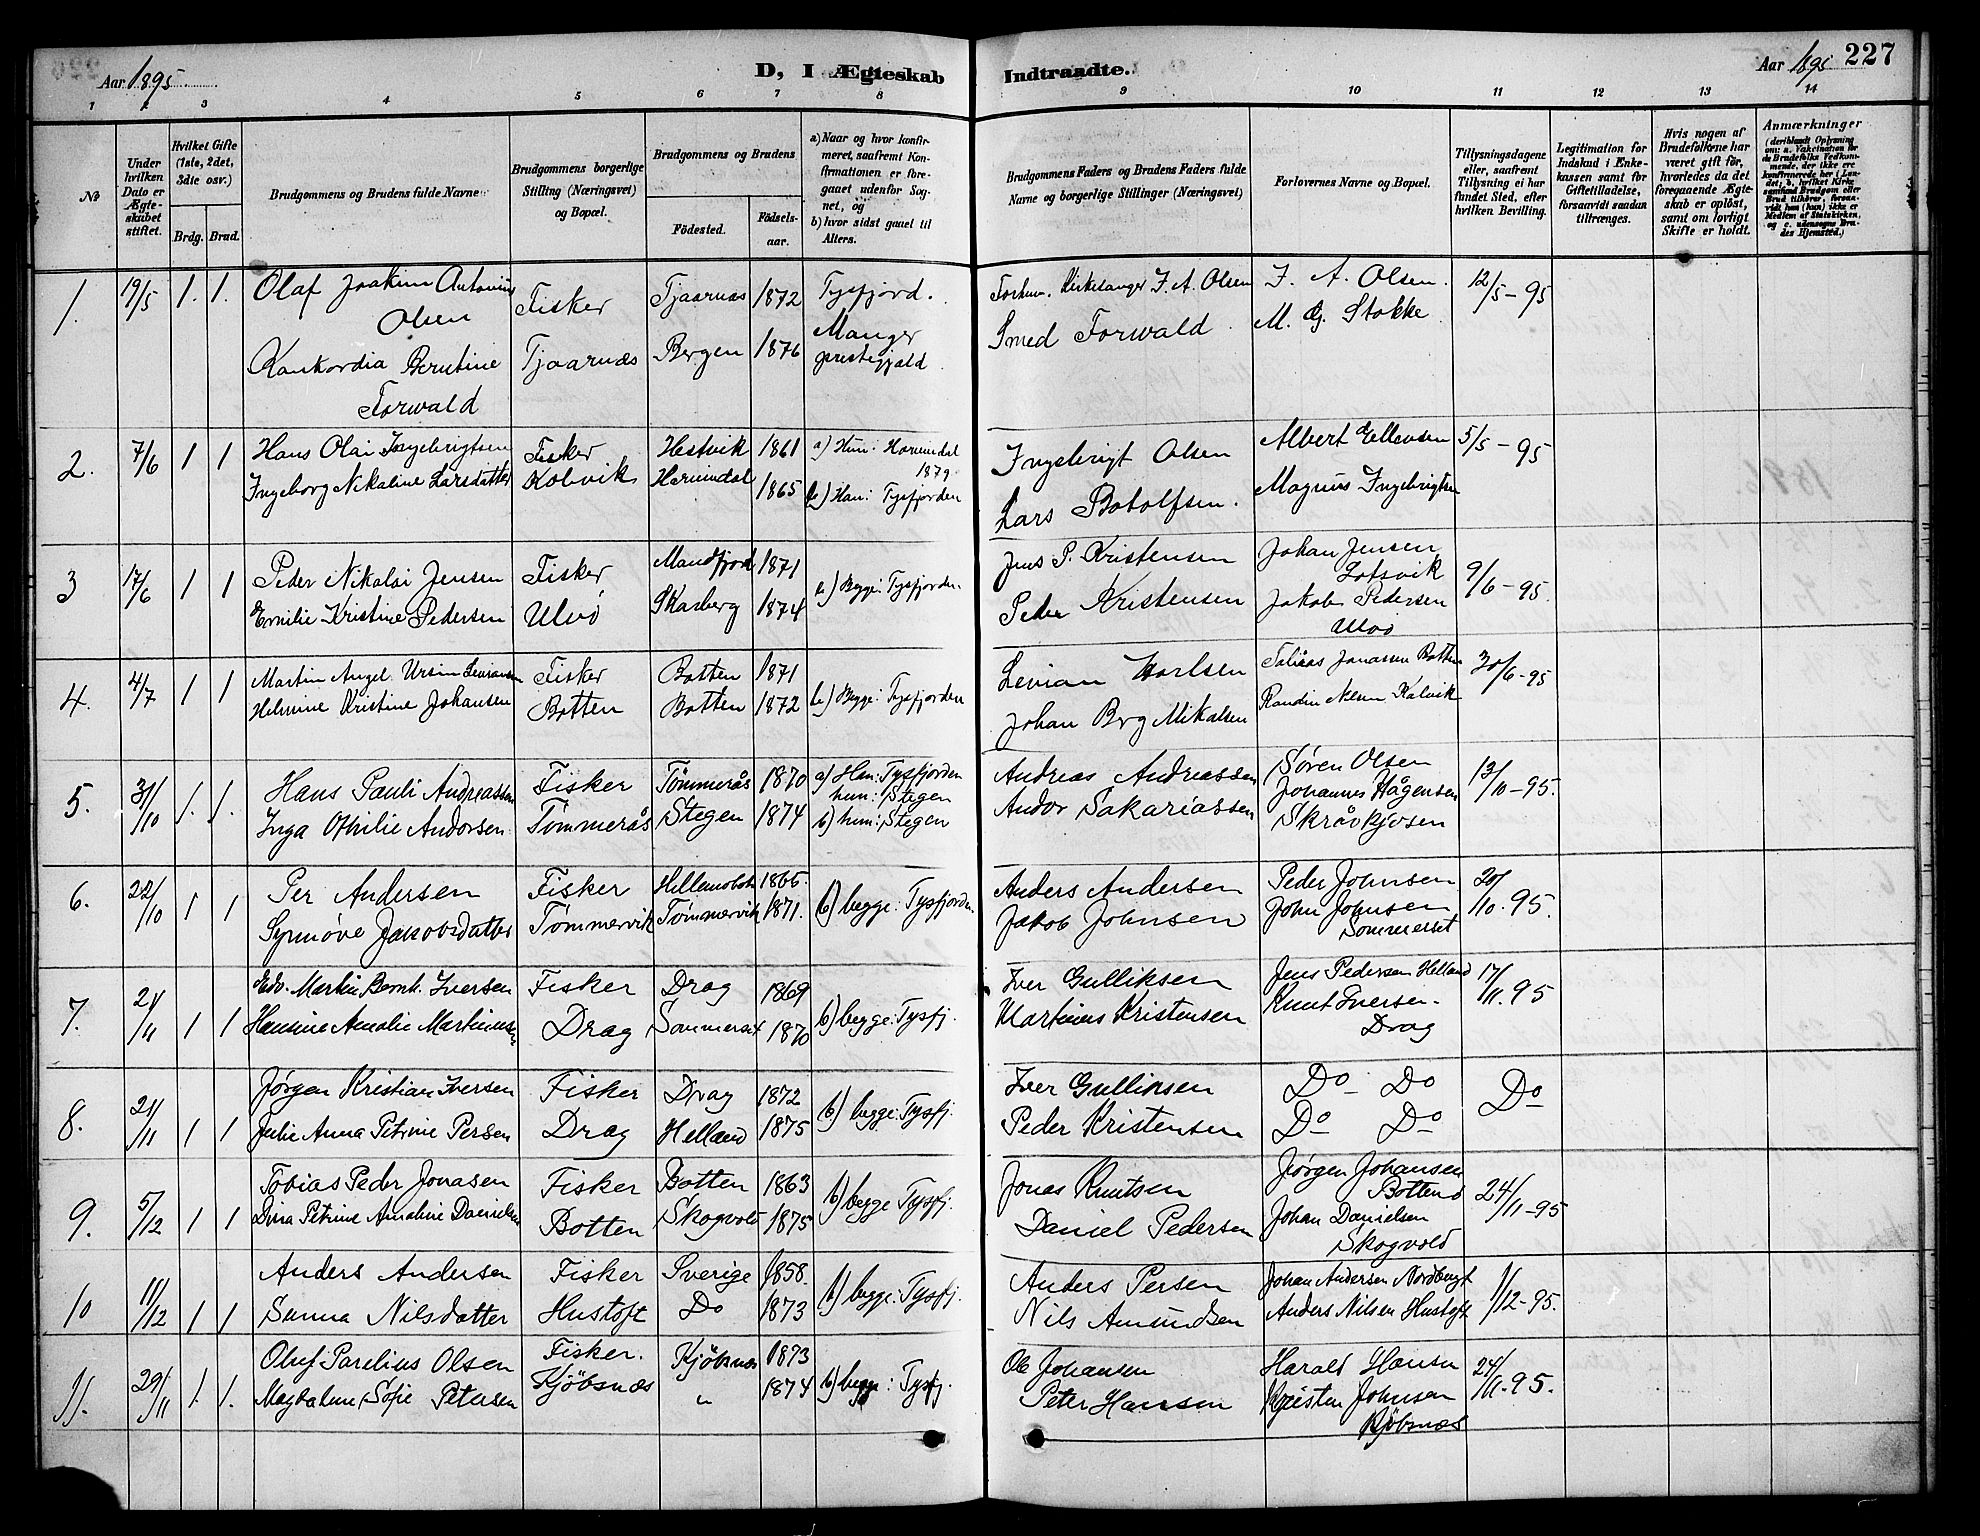 Aar 1895
D, I Ægteskab Indtraadte.
Aar 1895 227
1 2 3 4 5 6 7 8 9 10 11 12 13 14
№
Under hvilken Dato er Ægteskabet stiftet.
Hvilket Gifte (1ste, 2det, 3die osv.)
Brdg. Brud.
Brudgommens og Brudens fulde Navne
Brudgommens borgerlige Stilling (Næringsvei) og Bopæl.
Brudgommens og Brudens
Fødested. Fødselsaar.
a) Naar og hvor konfirmeret, saafremt Konfirmationen er foregaaet udenfor Sognet, og
b) hvor sidst gaaet til Alters.
Brudgommens Faders og Brudens Faders fulde Navne og borgerlige Stillinger (Næringsvei)
Forlovernes Navne og Bopæl.
Tillysningsdagene eller, saafremt Tillysning ei har fundet Sted, efter hvilken Bevilling.
Legitimation for Indskud i Enkekassen samt for Giftetilladelse, forsaavidt saadan tiltrænges.
Hvis nogen af Brudefolkene har været gift før, hvorledes da det foregaaende Ægteskab er opløst, samt om lovligt Skifte er holdt.
Anmærkninger
(deriblandt Oplysning om: a. Vakcination for de Brudefolks Vedkommende, der ikke ere konfirmerede her i Landet; b. hvilket Kirkesamfund Brudgom eller Brud tilhører, forsaavidt han (hun) ikke er Medlem af Statskirken, og c. udensogns Brudes Hjemsted.)
1. 19/5 1. 1. Olaf Joakim Antonius Olsen Fisker Tjaarnæs 1872 Tysfjord. Forhen. Kirkesanger J. A. Olsen J. A. Olsen. 12/5-95
Konkordia Berntine Forwald Tjaarnæs Bergen 1876 Manger prestegjæld Smed Forwald M. G. Stokke
2. 7/6 1 1 Hans Olai Ingebrigtsen Fisker Hestvik 1861 a) Hun: 1879. Ingebrigt Olsen Albert Ellevsen 5/5-95
Ingeborg Nikoline Larsdatter Kobvik 1865 b) Han: Tysfjorden Lars Botolfsen. Magnus Ingebrigtsen
3 17/6 1 1 Peder Nikolai Jensen Fisker Mandfjord 1871 b) Begge: Tysfjorden. Jens P. Kristensen Johan Jensen Lotsvik 9/6-95
Emilie Kristine Pedersen Ulvø Skarberg 1874 Peder Kristensen Jakob Pedersen Ulvø
4. 4/7 1 1 Martin Angel. Ursin Leviansen Fisker Botten 1871 b) Begge: Tysfjorden Levian Karlsen Tobias Jonassen Botten 30/6-95
Helmine Kristine Johansen Botten Botten 1872 Johan Brg Mikalsen Kalvik
5. 31/10 1. 1. Hans Pauli Andreassen Fisker Tømmerås 1870 a) Han: Tysfjorden hun: Stegen Andreas Andreassen Søren Olsen 13/10-95.
Inga Othilie Andorsen. Tømmerås Stegen 1874 b) hun: Stegen Andor Sakariassen Johannes Hågensen Skråvkjosen
6. 22/10 1 1 Per Andersen Fisker Hellemobotn 1865. b) begge: Tysfjorden. Anders Andersen Peder Johnsen 20/10.95.
Synnøve Jakobsdatter Tømmervik Tømmervik 1871. Jakob Johnsen John Johnsen Sommerset
7. 21/11 1 1 Edv. Martin Bernh. Iversen Fisker Drag 1869 b) begge: Tysfj. Iver Gulliksen Jens Pedersen Helland 17/11.95
Hansine Amalie Martinusen Drag Sommerset 1870 Martinus Kristensen Knut Iversen Drag
8. 21/11 1 1 Jørgen Kristian Iversen Fisker Drag 1872 b) begge: Tysfj. Iver Gulliksen Do Do Do
Julie Anna Petrine Persen Drag Helland 1875 Peder Kristensen Do Do
9. 5/12 1 1 Tobias Peder Jonasen Fisker Botten 1863 b) begge Tysfj. Jonas Knutsen Jørgen Johansen Botten 24/11-95
Dina Petrine Amaline Danielsen Botten Skogvold 1875 Daniel Pedersen Johan Danielsen Skogvold
10 11/12 1 1 Anders Andersen Fisker Sverige 1858. b) begge: Tysfj. Anders Persen Johan Andersen Nordbugt 1/12-95.
Sunna Nilsdatter Hustoft Do 1873 Nils Amundsen Anders Nilsen Hustoft
11. 29/11 1. 1. Oluf Parelius Olsen Fisker. Kjöbsnæs 1873 b) begge: Tysfj. Ole Johansen Harald Hansen 24/11.95.
Magdalene Sofie Petersen Kjöbsnæs " 1874 Peter Hansen Kristen Johnsen Kjöbsnæs